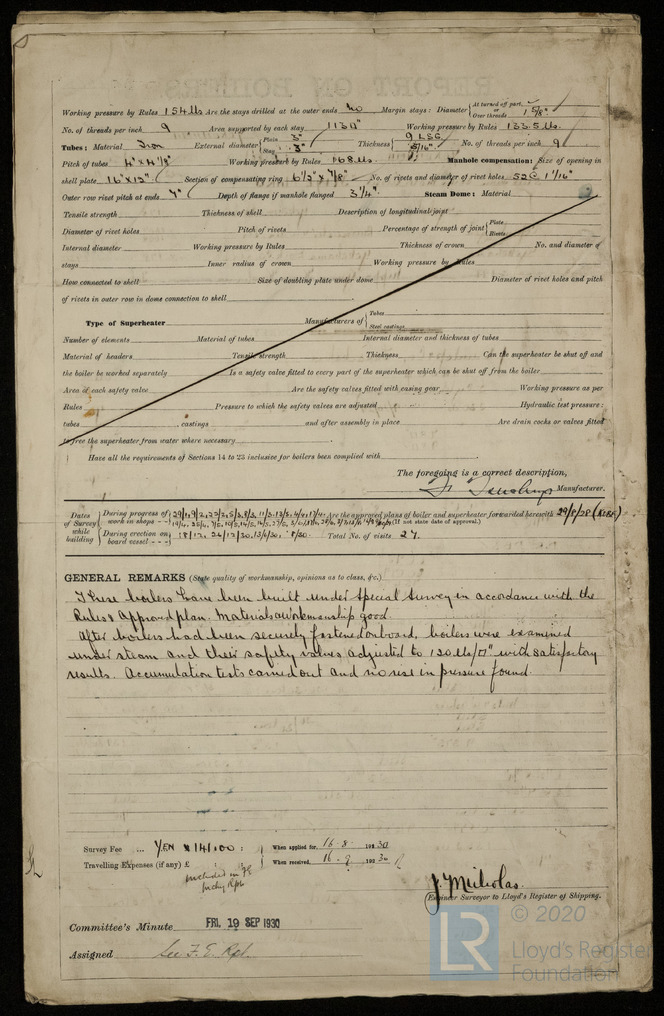 Working pressure by Rules 154 lbs Are the stays drilled at the outer ends No Margin stays: Diameter { At turned off part, or Over threads 1 5/8"
No. of threads per inch 9 Area supported by each stay 113 □" Working pressure by Rules 133.5 lbs.
Tubes: Material Iron External diameter { Plain 3" Stay 3" Thickness { 9 LSG 5/16" No. of threads per inch 9
Pitch of tubes 4" x 4 1/8" Working pressure by Rules 168 lbs. Manhole compensation: Size of opening in
shell plate 16" x 12" Section of compensating ring 6 1/2" x 7/8" No. of rivets and diameter of rivet holes 52 @ 1 1/16"
Outer row rivet pitch at ends 4" Depth of flange if manhole flanged 3 1/4" Steam Dome: Material
Tensile strength Thickness of shell Description of longitudinal joint
Diameter of rivet holes Pitch of rivets Percentage of strength of joint { Plate Rivets
Internal diameter Working pressure by Rules Thickness of crown No. and diameter of
stays Inner radius of crown Working pressure by Rules
How connected to shell Size of doubling plate under dome Diameter of rivet holes and pitch
of rivets in outer row in dome connection to shell
Type of Superheater Manufacturers of { Tubes Steel castings
Number of elements Material of tubes Internal diameter and thickness of tubes
Material of headers Tensile strength Thickness Can the superheater be shut off and
the boiler be worked separately Is a safety valve fitted to every part of the superheater which can be shut off from the boiler
Area of each safety valve Are the safety valves fitted with easing gear Working pressure as per
Rules Pressure to which the safety valves are adjusted Hydraulic test pressure:
tubes , castings and after assembly in place Are drain cocks or valves fitted
to free the superheater from water where necessary
Have all the requirements of Sections 14 to 23 inclusive for boilers been complied with
The foregoing is a correct description,
Manufacturer.
Dates of Survey while building { During progress of work in shops - - Are the approved plans of boiler and superheater forwarded herewith 29/8/28
(If not state date of approval.)
During erection on board vessel - - - Total No. of visits 27.
GENERAL REMARKS (State quality of workmanship, opinions as to class, &c.)
These boilers have been built under Special Survey in accordance with the
Rules & Approved plan. Materials & workmanship good.
After boilers had been securely fastened onboard, boilers were examined
under steam and their safety valves adjusted to 120 lbs/□" with satisfactory
results. Accumulation tests carried out and no rise in pressure found.
Survey Fee ... YEN 141.00 : When applied for, 16.8. 1930
Travelling Expenses (if any) £ : : When received, 16.9. 1930
included in FE
J. Nicholas.
Engineer Surveyor to Lloyd's Register of Shipping.
Committee's Minute FRI. 19 SEP 1930
Assigned See F. E. Rpt.
LR © 2020
Lloyd's Register
Foundation